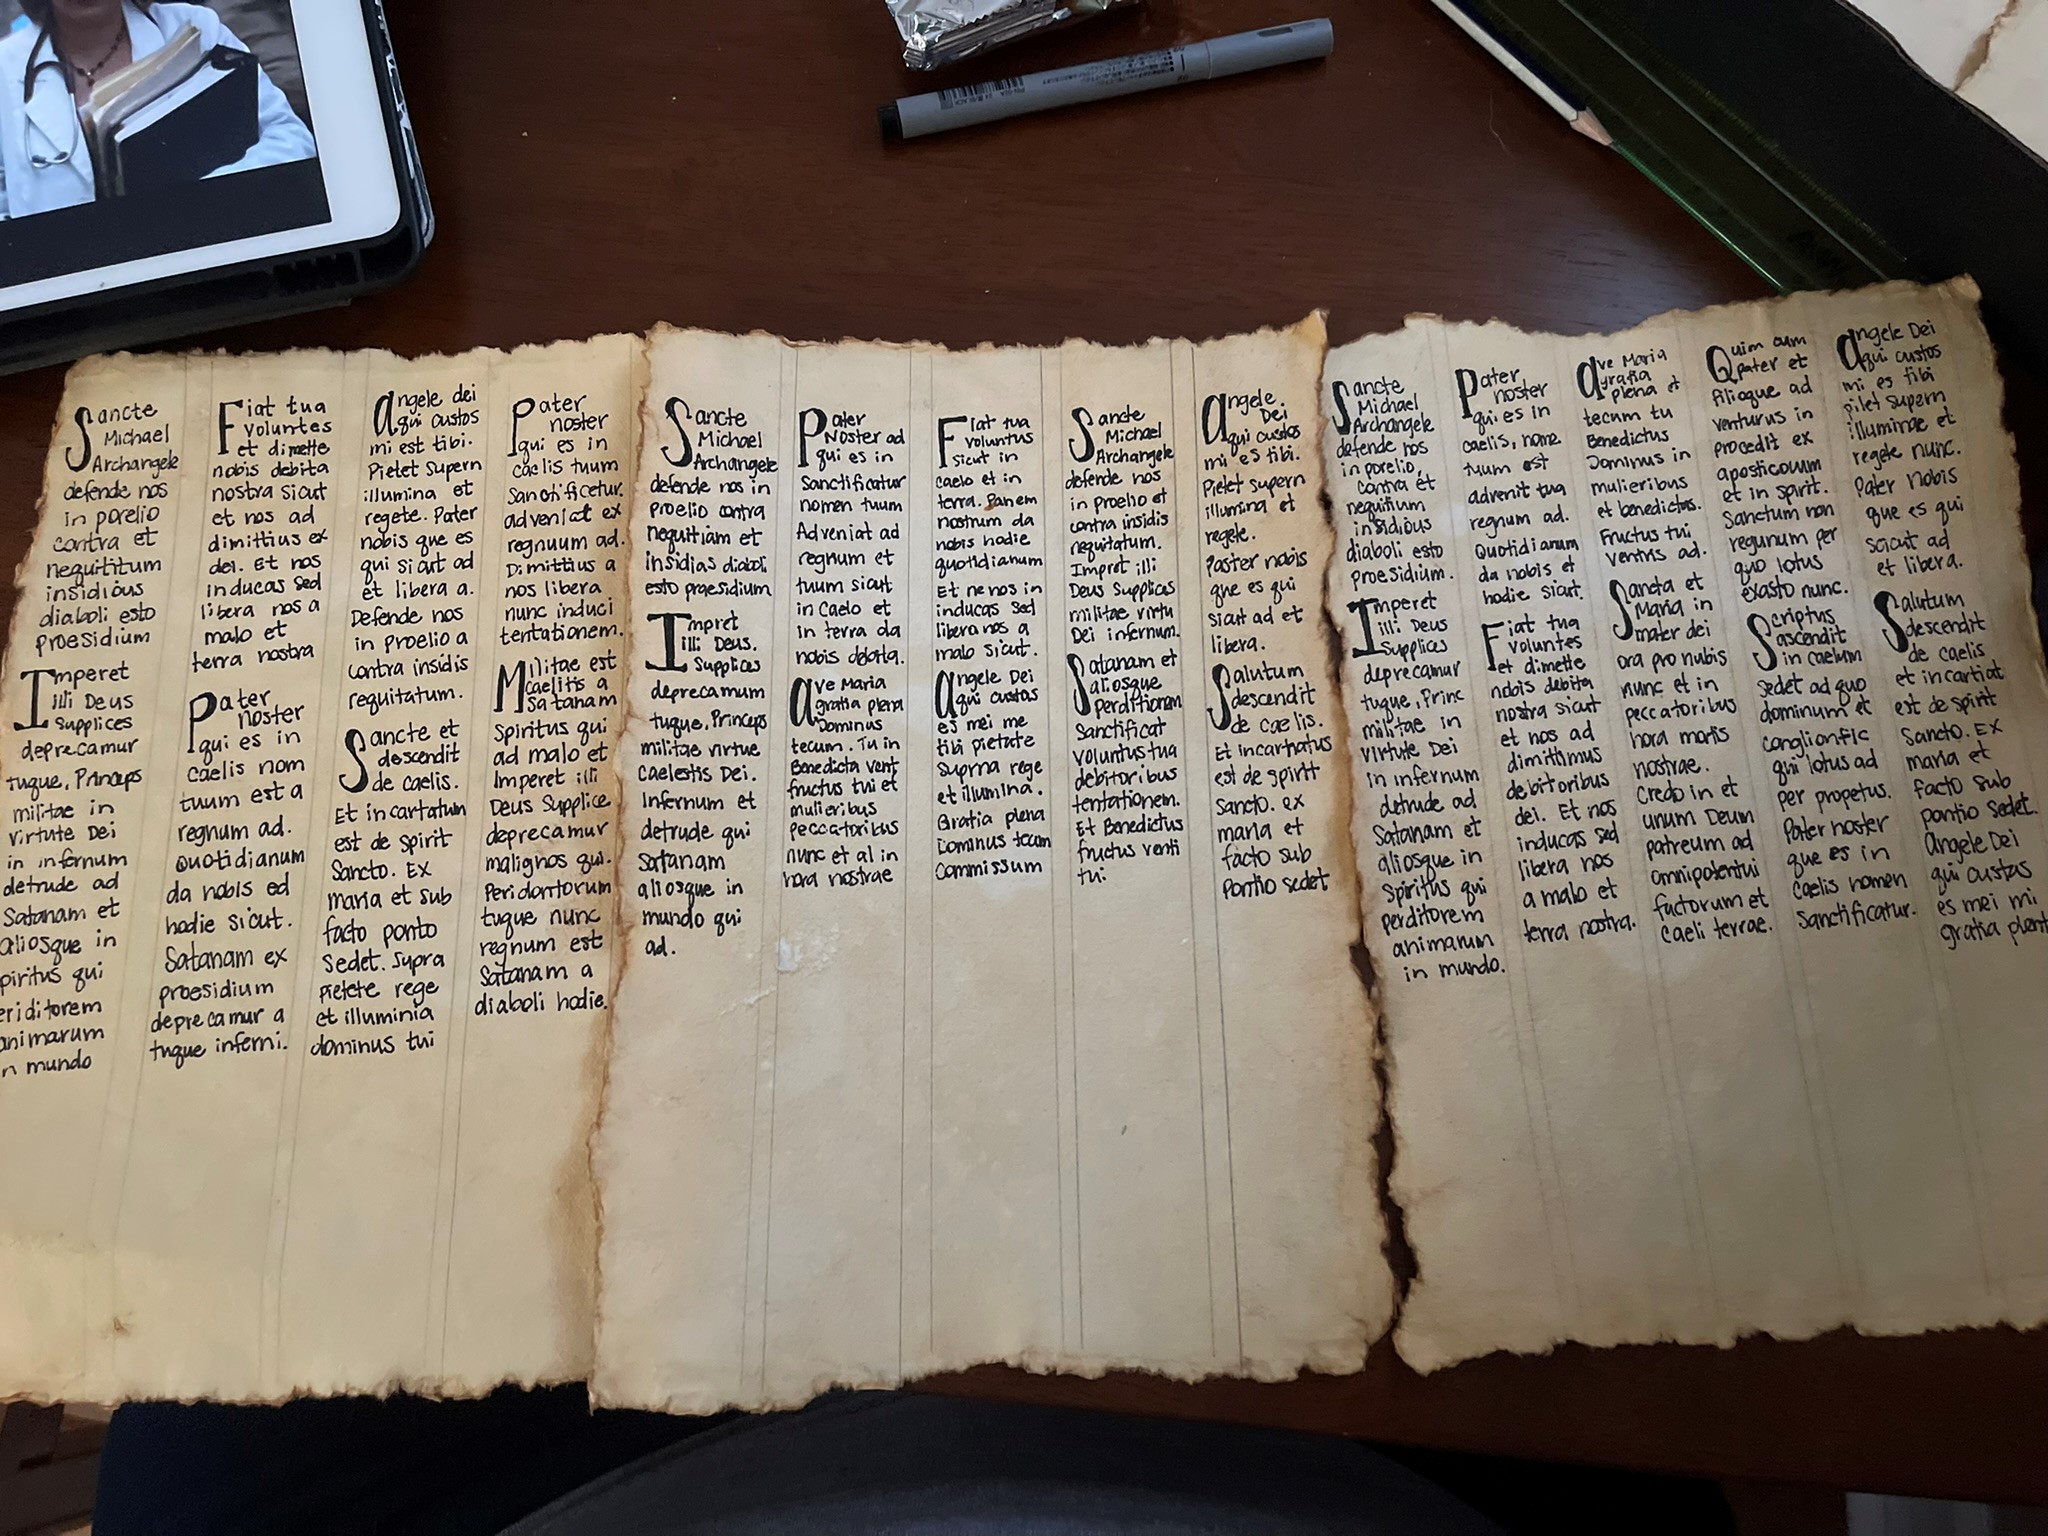 Sancte
Michael
Archangele
defende nos
in porelio
contra et
nequititum
insidious
diaboli esto
proesidium
Imperet
illi Deus
supplices
deprecamur
tuque, Princeps
militae in
virtute Dei
in infernum
detrude ad
Satanam et
aliosque in
spiritus qui
eriditorem
animarum
n mundo
Fiat tua
voluntes
et dimette
nobis debita
nostra sicut
et nos ad
dimittius ex
dei. Et nos
inducas sed
libera nos a
malo et
terra nostra
Pater
noster
qui es in
caelis nom
tuum est a
regnum ad.
Quotidianum
da nobis ed
hodie sicut.
Satanam ex
proesidium
deprecamur a
tuque inferni.
Angele dei
qui custos
mi est tibi.
Pietet supern
illumina et
regete. Pater
nobis que es
qui sicut ad
et libera a.
Defende nos
in proelio a
contra insidis
requitatum.
Sancte et
descendit
de caelis.
Et incartatum
est de spirit
Sancto. Ex
maria et sub
facto ponto
sedet. Supra
pietete rege
et illuminia
dominus tui
Pater
noster
qui es in
caelis tuum
sanctificetur.
adveniat ex
regnuum ad.
Dimittius a
nos libera
nunc induci
tentationem.
Militae est
caelitis a
satanam
Spiritus qui
ad malo et
Imperet illi
Deus Supplice
deprecamur
malignos qui.
Peridontorum
tuque nunc
regnum est
Satanam a
diaboli hodie.
Sancte
Michael
Archangele
defende nos in
proelio contra
nequitiam et
insidias diaboli
esto praesidium
Impret
illi Deus.
Supplices
deprecamum
tuque, Princeps
militae virtue
caelestis Dei.
Infernum et
detrude qui
Satanam
aliosque in
mundo qui
ad.
Pater
Noster ad
qui es in
Sanctificatur
nomen tuum
Adveniat ad
regnum et
tuum sicut
in Caelo et
in terra da
nobis debita.
Ave Maria
gratia plena
Dominus
tecum. Tu in
Benedicta vent
fructus tui et
mulieribus
peccatoribus
nunc et al in
hora nostrae
Fiat tua
voluntus
sicut in
caelo et in
terra. Panem
nostrum da
nobis hodie
quotidianum
Et ne nos in
inducas sed
libera nos a
malo sicut.
Angele Dei
qui custas
es mei me
tibi pietate
suprna rege
et illumina.
Gratia plena
Dominus tecam
Commissum
Sancte
Michael
Archangele
defende nos
in proelio et
contra insidis
nequitatum.
Impret illi
Deus Supplices
militae virtu
Dei infernum.
Satanam et
aliosque
perditionam
Sanctificat
voluntus tua
debitoribus
tentationem.
Et Benedictus
fructus venti
tui.
Angele.
Dei
qui custos
mi es tibi.
Pielet supern
illumina et
regele.
Paster nobis
que es qui
sicut ad et
libera.
Salutum
descendit
de caelis.
Et incarnatus
est de spirit
Sancto. Ex
maria et
facto sub
Pontio sedet
Sancte
Michael
Archangele
defende nos
in porelio,
contra et
nequitium
insidious
diaboli esto
proesidium.
Imperet
illi Deus
Supplices
deprecamur
tuque, Princ
militae in
virtute Dei
in infernum
detrude ad
Satanam et
aliosque in
Spiritus qui
perditorem
animarum
in mundo.
Pater
noster
qui es in
caelis, nome
tuum est
advenit tua
regnum ad.
Quotidianum
da nobis et
hodie sicut.
Fiat tua
voluntes
et dimette
nobis debita
nostra sicut
et nos ad
dimittimus
debitoribus
dei. Et nos
inducas sed
libera nos
a malo et
terra nostra.
Ave Maria
gratia
plena et
tecum tu
Benedictus
Dominus in
mulieribus
et benedictos.
Fructus tui
ventris ad.
Sancta et
Maria in
mater dei
ora pro nubis
nunc et in
peccatoribus
hora mortis
nostrae.
Credo in et
unum Deum
patreum ad
omnipotentui
factorum et
Caeli terrae.
Quim cum
pater et
Filioque ad
venturus in
procedit ex
aposticoum
et in spirit.
Sanctum non
regunum per
quo lotus
exasto nunc.
Scriptus
ascendit
in caelum
sedet ad quo
dominum et
qui lotus ad
per propetus.
Pater noster
que es in
caelis nomen
Sanctificatur.
Angele Dei
qui custos
mi es tibi
pilet supern
illuminae et
regele nunc.
Pater nobis
que es qui
scicut ad
et libera.
Salutum
descendit
de caelis
et incartiat
est de spirit
Sancto. EX
maria et
facto sub
pontio sedet.
Angele Dei
qui custas
es mei mi
gratia plent